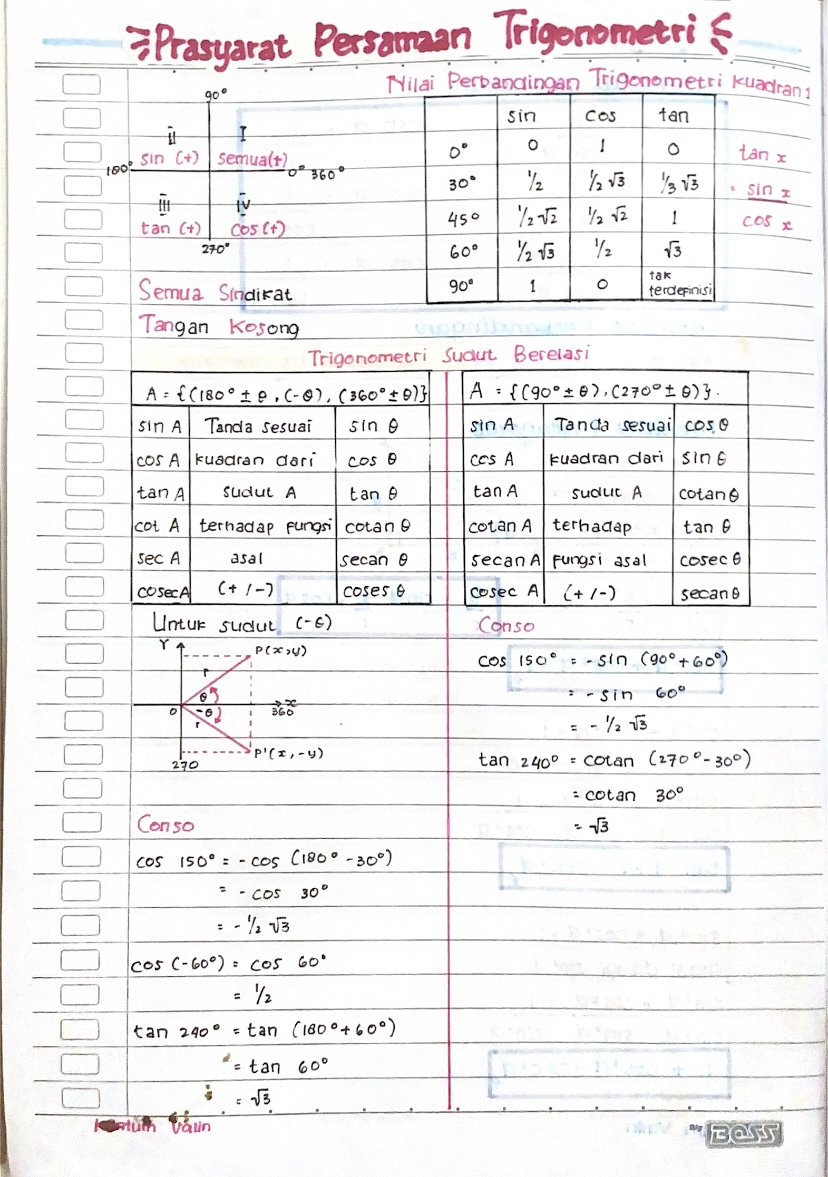 Prasyarat Persamaan Trigonometri
Nilai Perbandingan Trigonometri Kuadran 1
90°
II I
sin (+) semua(+)
180° 0° 360°
III IV
tan (+) cos(+)
270°
Semua Sindikat
Tangan Kosong
sin cos tan
0° 0 1 0
30° 1/2 1/2 √3 1/3 √3
45° 1/2 √2 1/2 √2 1
60° 1/2 √3 1/2 √3
90° 1 0 tak terdefinisi
tan x
= sin x
cos x
Trigonometri Sudut Berelasi
A = {(180° ± θ, (-θ), (360° ± θ)}
sin A Tanda sesuai sin θ
cos A kuadran dari cos θ
tan A sudut A tan θ
cot A terhadap fungsi cotan θ
sec A asal secan θ
cosec A (+ / -) coses θ
A = {(90° ± θ), (270° ± θ)}.
sin A Tanda sesuai cos θ
cos A kuadran dari sin θ
tan A sudut A cotan θ
cotan A terhadap tan θ
secan A fungsi asal cosec θ
cosec A (+ / -) secan θ
Untuk sudut (-θ)
Y
P(x,y)
r
θ
0 -θ x
360
r
P'(x,-y)
270
Conso
cos 150° = -cos (180° - 30°)
= -cos 30°
= -1/2 √3
cos (-60°) = cos 60°
= 1/2
tan 240° = tan (180° + 60°)
= tan 60°
= √3
Conso
cos 150° = -sin (90° + 60°)
= -sin 60°
= -1/2 √3
tan 240° = cotan (270° - 30°)
= cotan 30°
= √3
Valin
BOSS